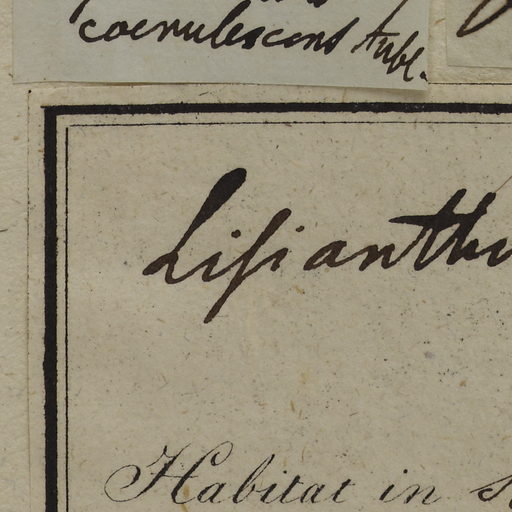 coerulescens Aubl.
Lisianthu
Habitat in